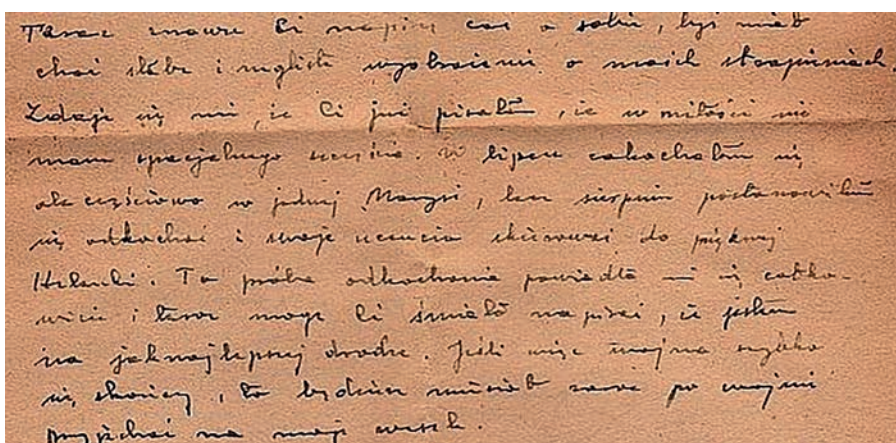 Teraz znowu Ci napiszę coś o sobie, byś miał
choć słabe i mgliste wyobrażenie o moich strapieniach.
Zdaje się mi, że Ci już pisałem, że w miłości nie
mam specjalnego szczęścia. W lipcu zakochałem się
ale częściowo w jednej Marysi, lecz sierpniu postanowiłem
się odkochać i swoje uczucia skierować do pięknej
Helenki. Ta próba odkochania powiodła mi się całko-
wicie i teraz mogę Ci śmiało napisać, że jestem
na jaknajlepszej drodze. Jeśli więc wojna szybko
się skończy, to będziesz musiał zaraz po wojnie
przyjechać na moje wesele.